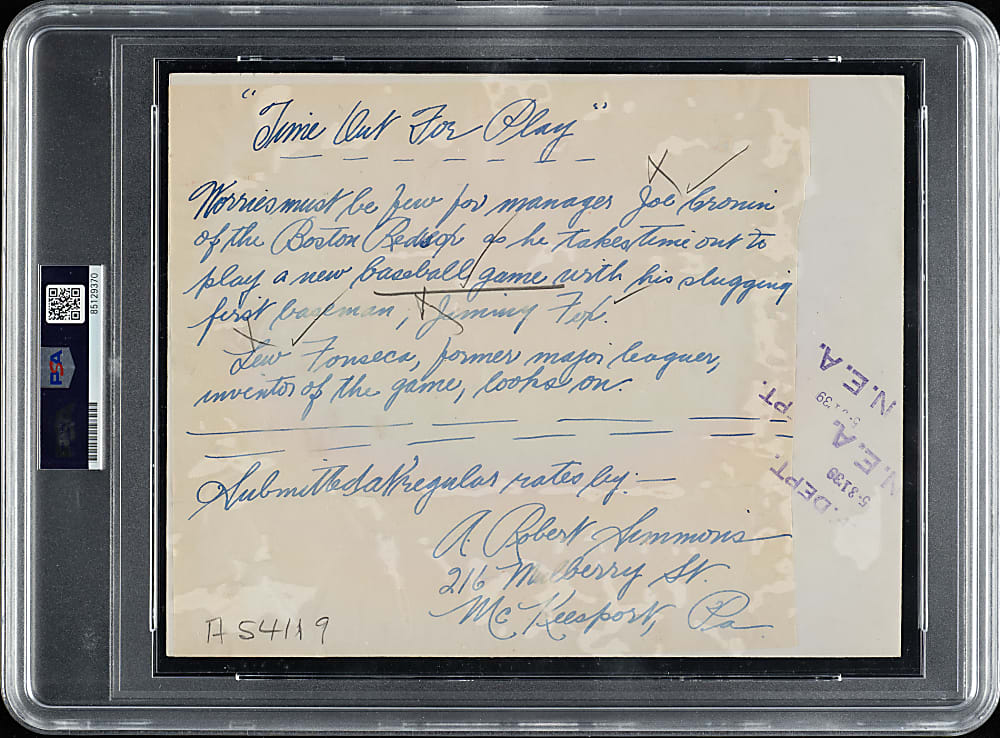 "Time Out For Play"
Worries must be few for manager Joe Cronin
of the Boston Redsox as he takes time out to
play a new baseball game with his slugging
first baseman, Jimmy Fox.
Lew Fonseca, former major leaguer,
inventor of the game, looks on.
Submitted at regular rates by:—
A. Robert Simmons
216 Mulberry St.
McKeesport, Pa.
A 54119
PSA
85129370
PT.
N.E.A.
DEPT.
5-8139
N.E.A.